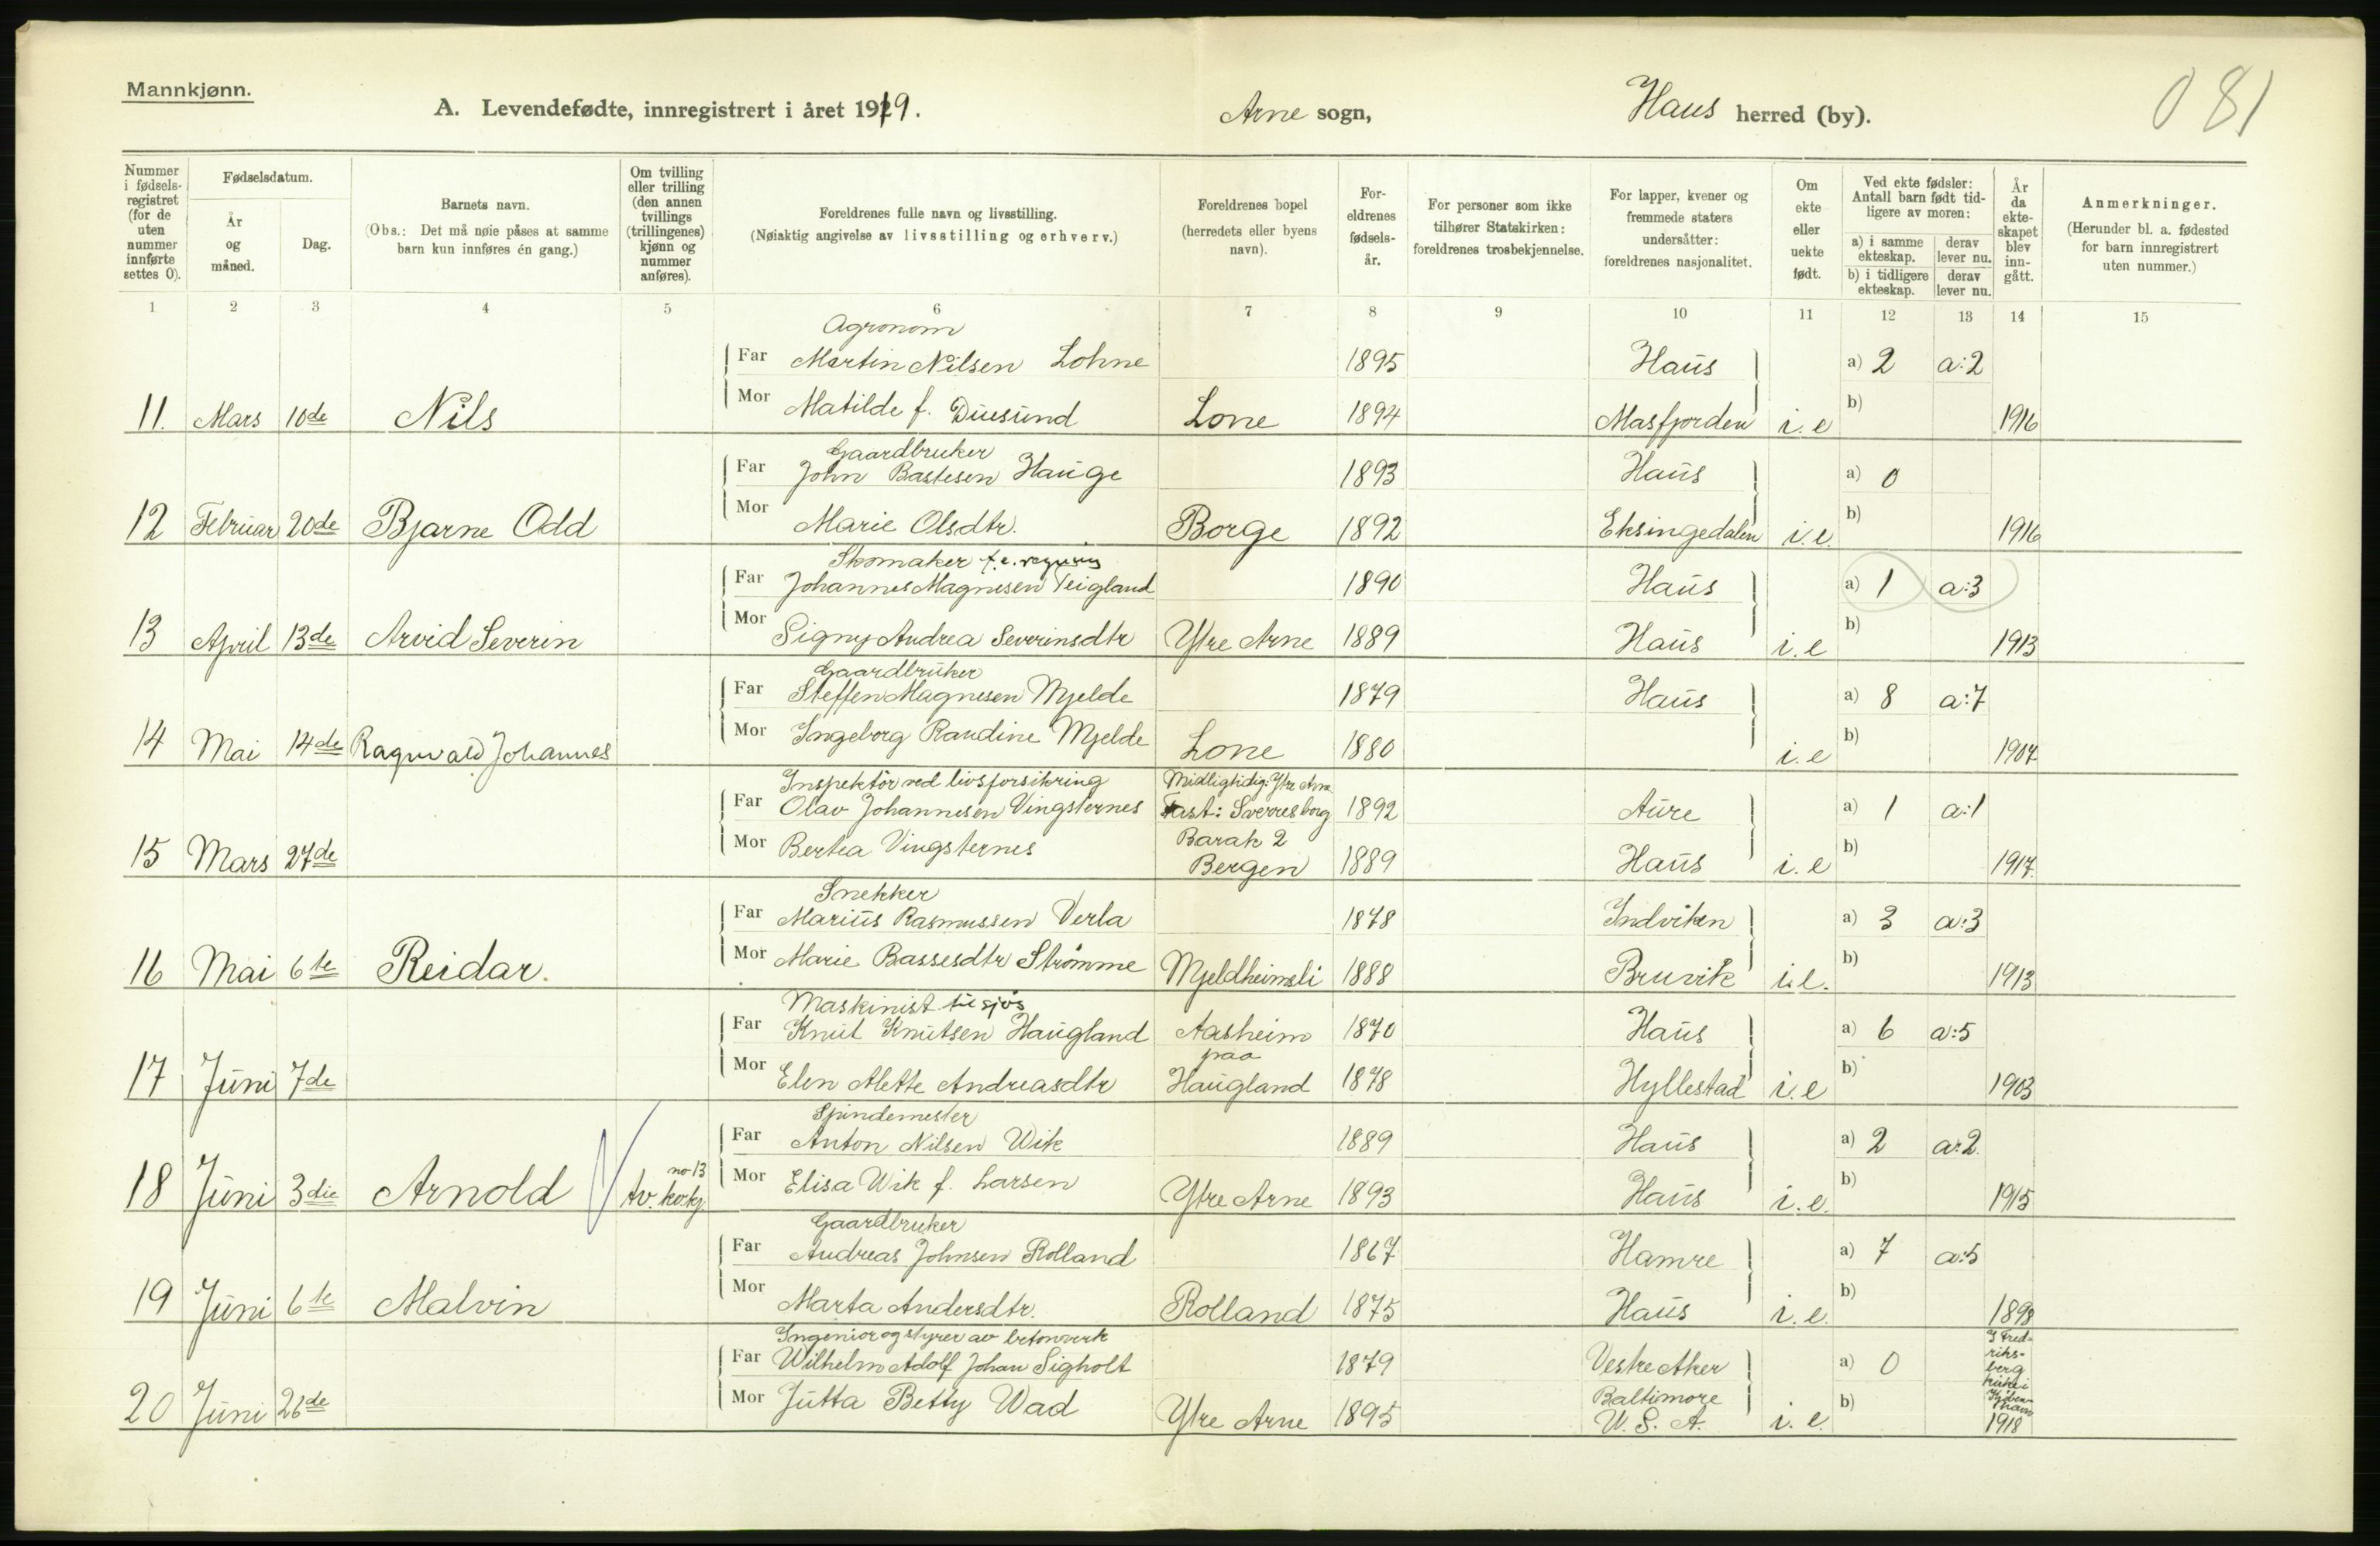 Mannkjønn.
A. Levendefødte, innregistrert i året 1919.
Arne sogn,
Haus herred (by).
081
Nummer i fødsels-registret (for de uten nummer innførte settes 0).
Fødselsdatum.
År og måned.
Dag.
Barnets navn.
(Obs.: Det må nøie påses at samme barn kun innføres én gang.)
Om tvilling eller trilling (den annen tvillings (trillingenes) kjønn og nummer anføres).
Foreldrenes fulle navn og livsstilling.
(Nøiaktig angivelse av livsstilling og erhverv.)
Foreldrenes bopel (herredets eller byens navn).
For-eldrenes fødsels-år.
For personer som ikke tilhører Statskirken: foreldrenes trosbekjennelse.
For lapper, kvener og fremmede staters undersåtter: foreldrenes nasjonalitet.
Om ekte eller uekte født.
Ved ekte fødsler: Antall barn født tid-ligere av moren:
a) i samme ekteskap. derav lever nu.
b) i tidligere ekteskap. derav lever nu.
År da ekte-skapet blev inn-gått.
Anmerkninger.
(Herunder bl. a. fødested for barn innregistrert uten nummer.)
1 2 3 4 5 6 7 8 9 10 11 12 13 14 15
Agronom
Far Martin Nilsen Lohne 1895 Haus a) 2 a:2
11. Mars 10de Nils Mor Matilde f. Duesund Lone 1894 Masfjorden i.e b) 1916
Gaardbruker
Far John Bastesen Hauge 1893 Haus a) 0
12 Februar 20de Bjarne Odd Mor Marie Olsdtr. Borge 1892 Eksingedalen i.e. b) 1916
Skomaker f.e. regning
Far Johannes Magnesen Teigland 1890 Haus a) 1 a:3
13 April 13de Arvid Severin Mor Signy Andrea Severinsdtr Ytre Arne 1889 Haus i.e b) 1913
Gaardbruker
Far Steffen Magnesen Mjelde 1879 Haus a) 8 a:7
14 Mai 14de Ragnvald Johannes Mor Ingeborg Randine Mjelde Lone 1880 i.e b) 1907
Inspektør ved livsforsikring Midligtidig: Ytre Arne
Far Olav Johannesen Vingsternes Fast: Sverresborg 1892 Aure a) 1 a:1
15 Mars 27de Mor Bertea Vingsternes Barak 2 Bergen 1889 Haus i.e b) 1917
Snekker
Far Marius Rasmussen Verla 1878 Indviken a) 3 a:3
16 Mai 6te Reidar. Mor Marie Bassesdtr Strømme Mjeldheimsli 1888 Bruvik i.e. b) 1913
Maskinist til sjøs
Far Knut Knutsen Haugland Aasheim 1870 Haus a) 6 a:5
17 Juni 7de Mor Elen Alette Andreasdtr paa Haugland 1878 Hyllestad i.e b) 1903
Spindemester
Far Anton Nilsen Wik 1889 Haus a) 2 a:2.
18 Juni 3die Arnold no 13 tv. kv.kj. Mor Elisa Wik f. Larsen Ytre Arne 1893 Haus i.e. b) 1915
Gaardbruker
Far Andreas Johnsen Rolland 1867 Hamre a) 7 a:5
19 Juni 6te Malvin Mor Marta Andersdtr. Rolland 1875 Haus i.e. b) 1898
Ingeniør og styrer av betonverk
Far Wilhelm Adolf Johan Sigholt 1879 Vestre Aker a) 0
20 Juni 26de Mor Jutta Betty Wad Ytre Arne 1895 Baltimore U.S.A. i.e. b) I Fred-riks-berg kirke i Kjøben-havn 1918